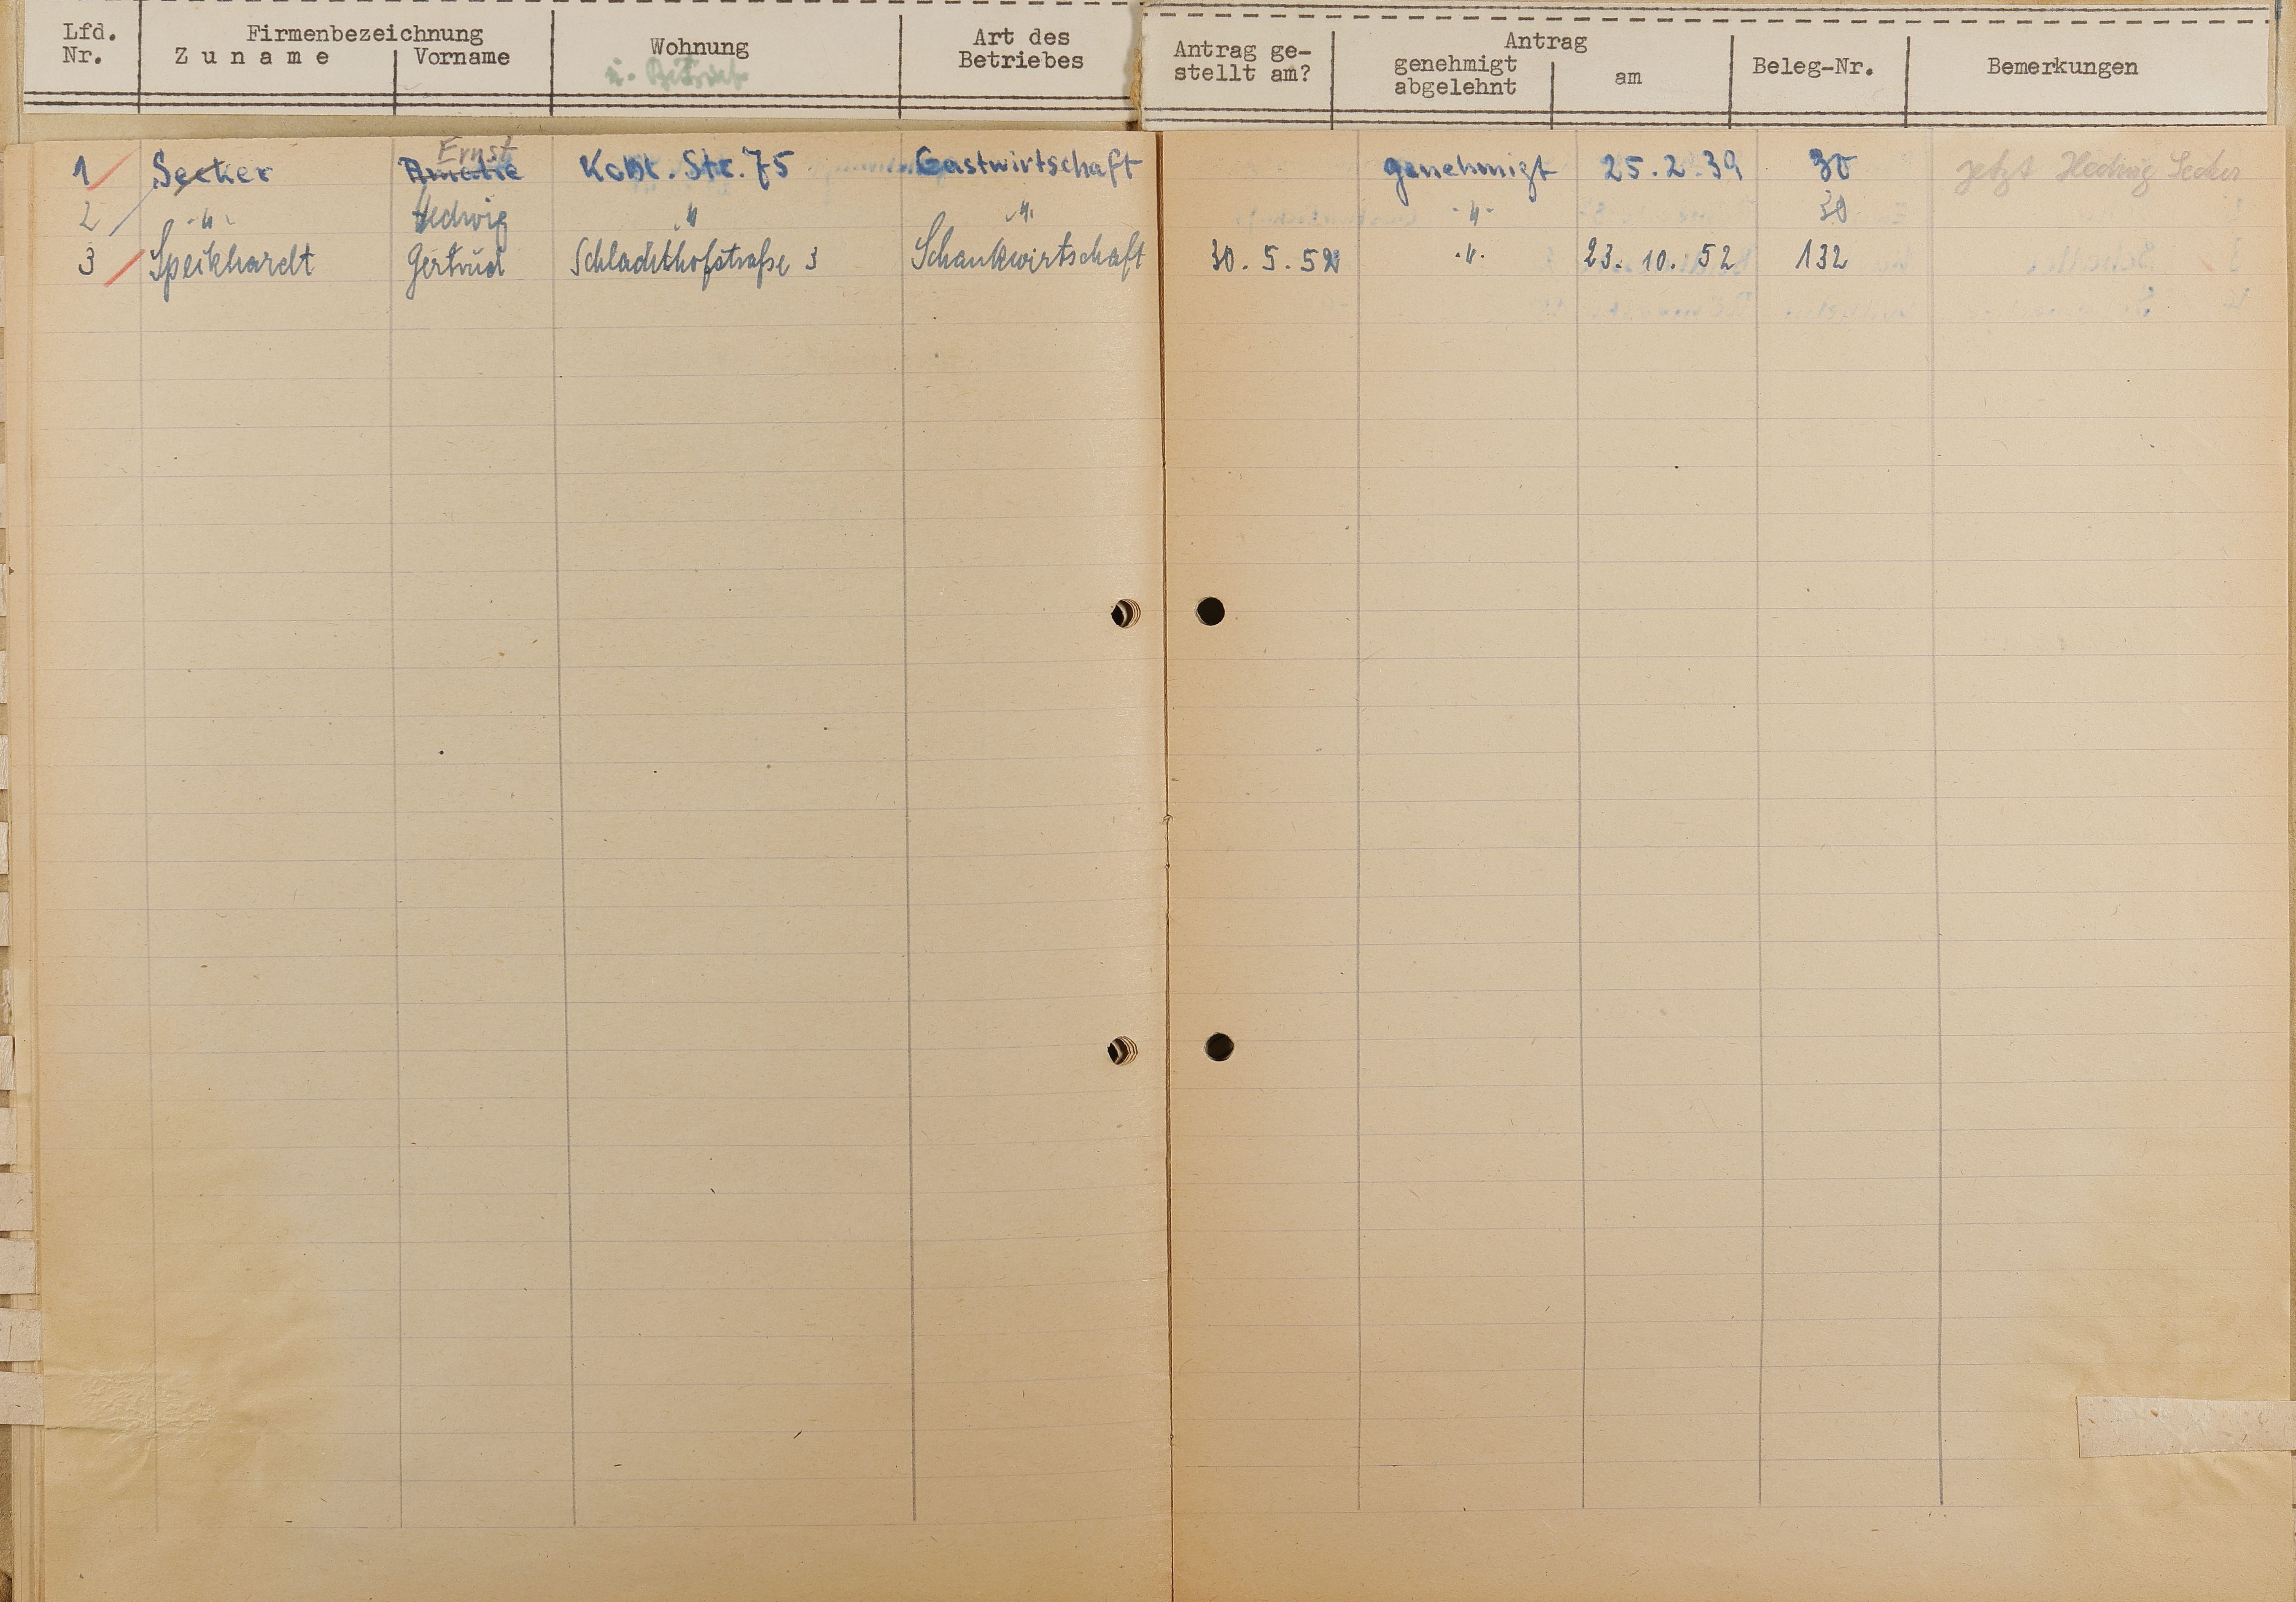 Lfd. Nr. Firmenbezeichnung Zuname Vorname Wohnung u. Betrieb Art des Betriebes Antrag gestellt am? Antrag genehmigt abgelehnt am Beleg-Nr. Bemerkungen
Ernst
1 Secker Amalie Kobl. Str. 75 Gastwirtschaft genehmigt 25.2.39 30 jetzt Hedwig Secker
2 -"- Hedwig " -"- -"- 30
3 Speikhardt Gertrud Schlachthofstraße 3 Schankwirtschaft 30.5.52 -"- 23.10.52 132